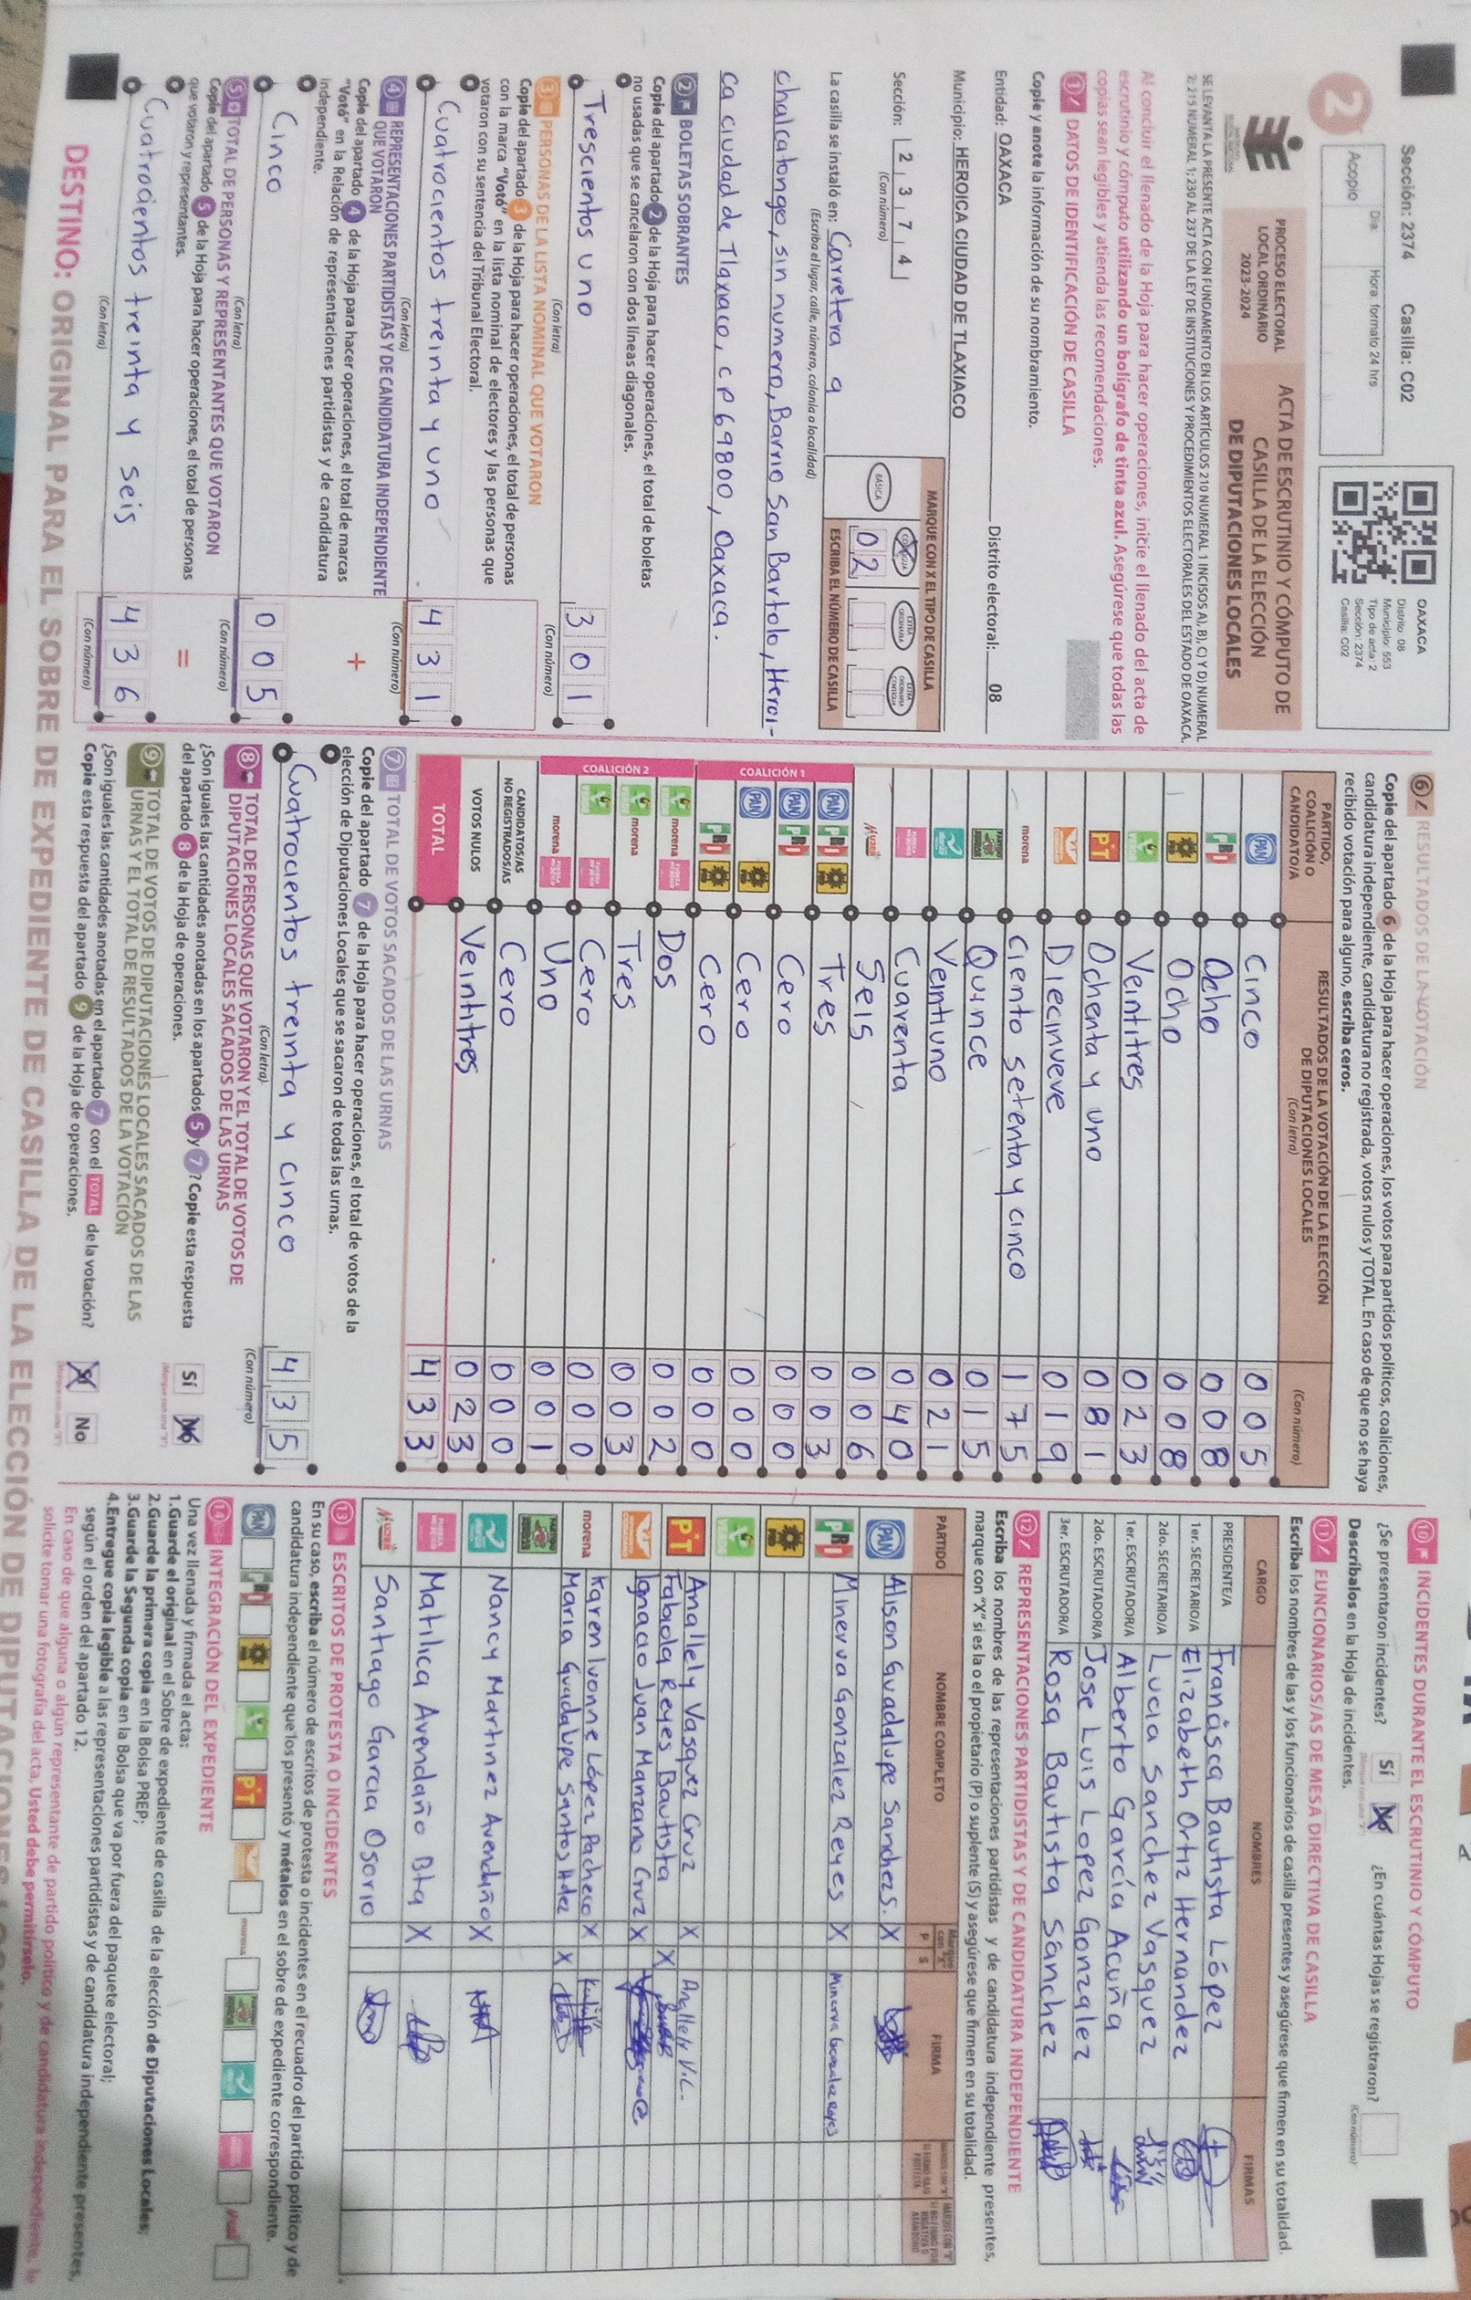 Sección: 2374 Casilla: C02
2
Día: Hora: formato 24 hrs
Acopio
OAXACA
Distrito: 08
Municipio: 553
Tipo de acta: 2
Sección: 2374
Casilla: C02
PROCESO ELECTORAL
LOCAL ORDINARIO
2023-2024
ACTA DE ESCRUTINIO Y CÓMPUTO DE
CASILLA DE LA ELECCIÓN
DE DIPUTACIONES LOCALES
SE LEVANTA LA PRESENTE ACTA CON FUNDAMENTO EN LOS ARTÍCULOS 210 NUMERAL 1 INCISOS A), B), C) Y D) NUMERAL
2; 215 NUMERAL 1; 230 AL 237 DE LA LEY DE INSTITUCIONES Y PROCEDIMIENTOS ELECTORALES DEL ESTADO DE OAXACA.
Al concluir el llenado de la Hoja para hacer operaciones, inicie el llenado del acta de
escrutinio y cómputo utilizando un bolígrafo de tinta azul. Asegúrese que todas las
copias sean legibles y atienda las recomendaciones.
1 DATOS DE IDENTIFICACIÓN DE CASILLA
Copie y anote la información de su nombramiento.
Entidad: OAXACA Distrito electoral: 08
Municipio: HEROICA CIUDAD DE TLAXIACO
Sección: 2 3 7 4
(Con número)
MARQUE CON X EL TIPO DE CASILLA
BÁSICA
ESCRIBA EL NÚMERO DE CASILLA
02
La casilla se instaló en: Carretera a
(Escriba el lugar, calle, número, colonia o localidad)
chalcatongo, sin numero, Barrio San Bartolo, Heroi-
ca ciudad de Tlaxiaco, CP 69800, Oaxaca.
2 BOLETAS SOBRANTES
Copie del apartado 2 de la Hoja para hacer operaciones, el total de boletas
no usadas que se cancelaron con dos líneas diagonales.
Trescientos uno 301
(Con letra) (Con número)
3 PERSONAS DE LA LISTA NOMINAL QUE VOTARON
Copie del apartado 3 de la Hoja para hacer operaciones, el total de personas
con la marca "Votó" en la lista nominal de electores y las personas que
votaron con su sentencia del Tribunal Electoral.
Cuatrocientos treinta y uno 431
(Con letra) (Con número)
4 REPRESENTACIONES PARTIDISTAS Y DE CANDIDATURA INDEPENDIENTE
QUE VOTARON
Copie del apartado 4 de la Hoja para hacer operaciones, el total de marcas
"Votó" en la Relación de representaciones partidistas y de candidatura
independiente.
+
Cinco 005
(Con letra) (Con número)
5 TOTAL DE PERSONAS Y REPRESENTANTES QUE VOTARON
Copie del apartado 5 de la Hoja para hacer operaciones, el total de personas
que votaron y representantes.
=
Cuatrocientos treinta y seis 436
(Con letra) (Con número)
6 RESULTADOS DE LA VOTACIÓN
Copie del apartado 6 de la Hoja para hacer operaciones, los votos para partidos políticos, coaliciones,
candidatura independiente, candidatura no registrada, votos nulos y TOTAL. En caso de que no se haya
recibido votación para alguno, escriba ceros.
PARTIDO,
COALICIÓN O
CANDIDATO/A
RESULTADOS DE LA VOTACIÓN DE LA ELECCIÓN
DE DIPUTACIONES LOCALES
(Con letra) (Con número)
PAN Cinco 005
PRI Ocho 008
PRD Ocho 008
VERDE Veintitres 023
PT Ochenta y uno 081
Diecinueve 019
morena Ciento setenta y cinco 175
Quince 015
Veintiuno 021
Cuarenta 040
MUJER Seis 006
COALICIÓN 1
PAN PRI PRD Tres 003
PAN PRI Cero 000
PAN PRD Cero 000
PRI PRD Cero 000
COALICIÓN 2
VERDE morena Dos 002
VERDE morena Tres 003
VERDE Cero 000
morena Uno 001
CANDIDATOS/AS
NO REGISTRADOS/AS Cero 000
VOTOS NULOS Veintitres 023
TOTAL 433
7 TOTAL DE VOTOS SACADOS DE LAS URNAS
Copie del apartado 7 de la Hoja para hacer operaciones, el total de votos de la
elección de Diputaciones Locales que se sacaron de todas las urnas.
Cuatrocientos treinta y cinco 435
(Con letra) (Con número)
8 TOTAL DE PERSONAS QUE VOTARON Y EL TOTAL DE VOTOS DE
DIPUTACIONES LOCALES SACADOS DE LAS URNAS
¿Son iguales las cantidades anotadas en los apartados 5 y 7? Copie esta respuesta
del apartado 8 de la Hoja de operaciones.
Sí No
9 TOTAL DE VOTOS DE DIPUTACIONES LOCALES SACADOS DE LAS
URNAS Y EL TOTAL DE RESULTADOS DE LA VOTACIÓN
¿Son iguales las cantidades anotadas en el apartado 7 con el TOTAL de la votación?
Copie esta respuesta del apartado 9 de la Hoja de operaciones.
Sí No
10 INCIDENTES DURANTE EL ESCRUTINIO Y CÓMPUTO
¿Se presentaron incidentes? Sí No ¿En cuántas Hojas se registraron?
(Con número)
Descríbalos en la Hoja de incidentes.
11 FUNCIONARIOS/AS DE MESA DIRECTIVA DE CASILLA
Escriba los nombres de las y los funcionarios de casilla presentes y asegúrese que firmen en su totalidad.
CARGO NOMBRES FIRMAS
PRESIDENTE/A Francisca Bautista López
1er. SECRETARIO/A Elizabeth Ortiz Hernandez
2do. SECRETARIO/A Lucia Sanchez Vasquez
1er. ESCRUTADOR/A Alberto García Acuña
2do. ESCRUTADOR/A Jose Luis Lopez Gonzalez
3er. ESCRUTADOR/A Rosa Bautista Sanchez
12 REPRESENTACIONES PARTIDISTAS Y DE CANDIDATURA INDEPENDIENTE
Escriba los nombres de las representaciones partidistas y de candidatura independiente presentes,
marque con "X" si es la o el propietario (P) o suplente (S) y asegúrese que firmen en su totalidad.
PARTIDO NOMBRE COMPLETO P S FIRMA
PAN Alison Guadalupe Sanchez S. X
PRI Minerva Gonzalez Reyes X Minerva Gonzalez Reyes
PRD
VERDE
PT Anallely Vasquez Cruz X Anallely V.C.
Fabiola Reyes Bautista X
Ignacio Juan Manzano Cruz X
morena Karen Ivonne López Pacheco X
Maria Guadalupe Santos Hdez X
Nancy Martinez Avendaño X
Matilica Avendaño Bta X
MUJER Santiago Garcia Osorio
13 ESCRITOS DE PROTESTA O INCIDENTES
En su caso, escriba el número de escritos de protesta o incidentes en el recuadro del partido político y de
candidatura independiente que los presentó y métalos en el sobre de expediente correspondiente.
PAN PRI PRD VERDE PT morena
14 INTEGRACIÓN DEL EXPEDIENTE
Una vez llenada y firmada el acta:
1.Guarde el original en el Sobre de expediente de casilla de la elección de Diputaciones Locales;
2.Guarde la primera copia en la Bolsa PREP;
3.Guarde la Segunda copia en la Bolsa que va por fuera del paquete electoral;
4.Entregue copia legible a las representaciones partidistas y de candidatura independiente presentes,
según el orden del apartado 12.
En caso de que alguna o algún representante de partido político y de candidatura independiente, lo
solicite tomar una fotografía del acta, Usted debe permitírselo.
DESTINO: ORIGINAL PARA EL SOBRE DE EXPEDIENTE DE CASILLA DE LA ELECCIÓN DE DIPUTACIONES LOCALES